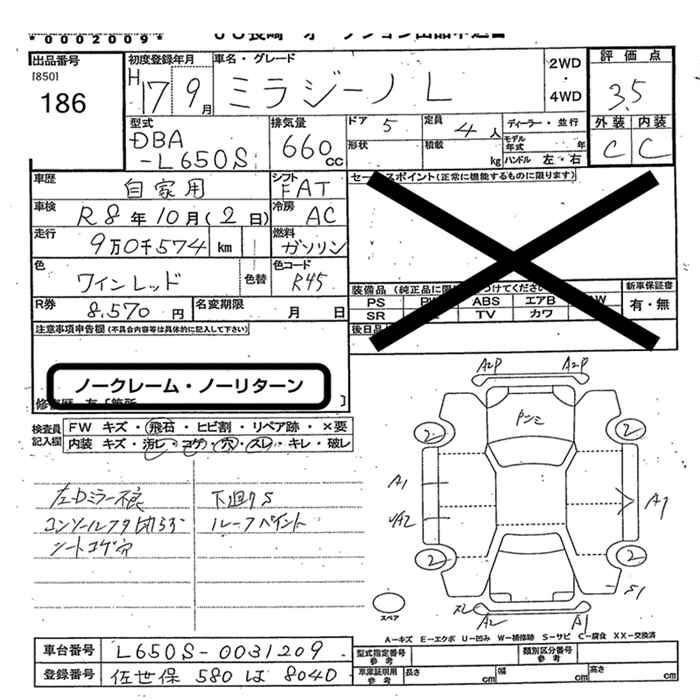 *0002009*
出品番号
[850]
186
初度登録年月
H17年9月
車名・グレード
ミラジーノ L
2WD
・
4WD
評価点
3.5
外装 内装
C C
型式
DBA
-L650S
排気量
660cc
ドア 5
定員 4人
形状
積載 kg
ディーラー・並行
モデル年式 年
ハンドル 左・右
車歴 自家用
シフト FAT
車検 R8年10月(2日)
冷房 AC
走行 9万0千574 km
燃料 ガソリン
色 ワインレッド
色替
色コード R45
R券 8,570円
名変期限 月 日
注意事項申告欄(不具合内容等は具体的に記入して下さい)
ノークレーム・ノーリターン
セールスポイント(正常に機能するものに限ります)
新車保証書
有・無
PS ABS エアB
SR TV カワ
検査員記入欄
FW キズ・飛石・ヒビ割・リペア跡・×要
内装 キズ・汚レ・コゲ・穴・スレ・キレ・破レ
左Dミラー不良
シートコゲ穴
下廻りS
ルーフペイント
A2P A2P
2 2
A1
2 2
S1
A2 A1
スペア
A-キズ E-エクボ U-凹み W-補修跡 S-サビ C-腐食 XX-交換済
車台番号 L650S-0031209
登録番号 佐世保 580 は 8040
型式指定番号 参考
類別区分番号 参考
車庫証明用 参考
長さ cm 幅 cm 高さ cm